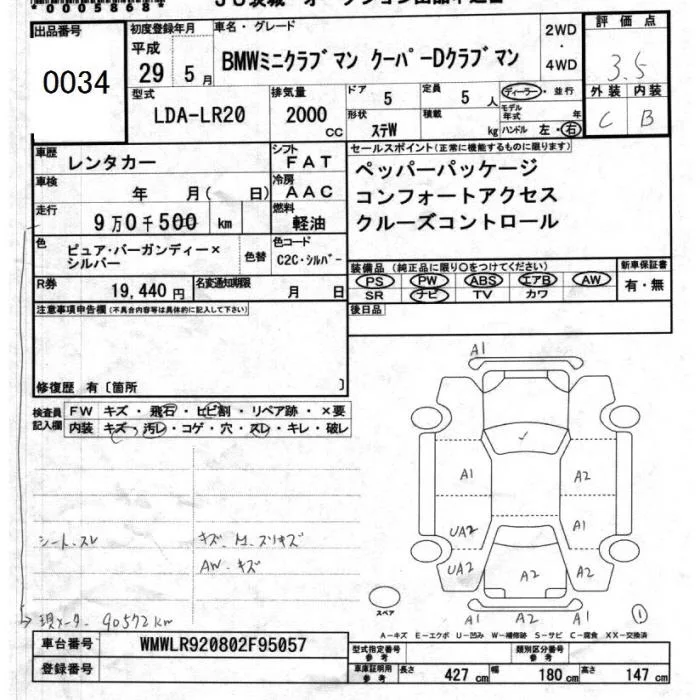 *0005868*
出品番号
0034
初度登録年月
平成
29 5月
車名・グレード
BMWミニクラブマン クーパーDクラブマン
2WD
・
4WD
評価点
3.5
外装 内装
C B
型式
LDA-LR20
排気量
2000 CC
ドア
5
定員
5人
ディーラー・並行
モデル年式 年
形状
ステW
積載
kg
ハンドル 左・右
車歴
レンタカー
シフト
FAT
車検
年 月( 日)
冷房
AAC
走行
9万0千500 km
燃料
軽油
色
ピュア・バーガンディー×
シルバー
色替
色コード
C2C・シルバー
R券
19,440円
名変通知期限
月 日
セールスポイント(正常に機能するものに限ります)
ペッパーパッケージ
コンフォートアクセス
クルーズコントロール
装備品(純正品に限り○をつけてください)
PS PW ABS エアB AW
SR ナビ TV カワ
新車保証書
有・無
後日品
注意事項申告欄(不具合内容等は具体的に記入して下さい)
修復歴 有〔箇所 〕
検査員
記入欄
FW キズ・飛石・ヒビ割・リペア跡・×要
内装 キズ・汚レ・コゲ・穴・スレ・キレ・破レ
シート・スレ
キズ、M・スリキズ
AW・キズ
現メータ 90572km
A1
A1
A2
UA2
A1
UA2
A2
A2
A1
A2
スペア
1
A-キズ E-エクボ U-凹み W-補修跡 S-サビ C-腐食 XX-交換済
車台番号
WMWLR920802F95057
登録番号
型式指定番号
参考
類別区分番号
参考
車庫証明用
参考
長さ 427 cm 幅 180 cm 高さ 147 cm